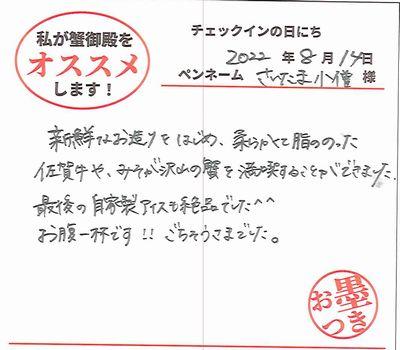 私が蟹御殿を
オススメ
します！
チェックインの日にち
2022 年 8 月 14 日
ペンネーム さいたま小僧 様
新鮮なお造りをはじめ、柔らかくて脂ののった
佐賀牛や、みそが沢山の蟹を満喫することができました。
最後の自家製アイスも絶品でした^^
もう腹一杯です!! ごちそうさまでした。
お墨つき